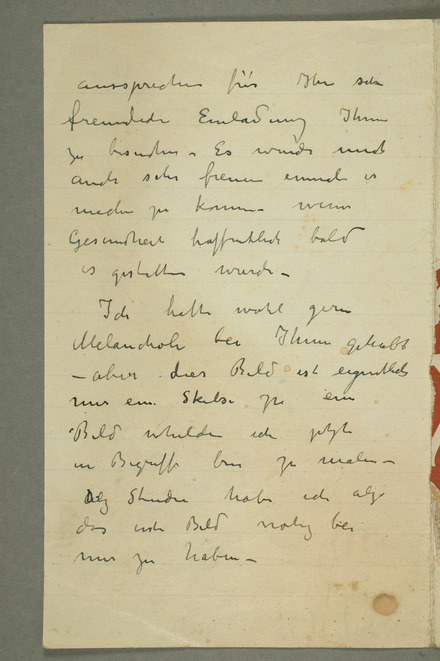 aussprechen für Ihr sehr
freundliche Einladung Ihnen
zu besuchen – Es würde mich
auch sehr freuen einmal es
machen zu können – wenn
Gesundheit hoffentlich bald
es gestatten wurde –
Ich hatte wohl gern
Melancholi bei Ihnen gehabt
– aber dies Bild ist eigentlich
nur ein Skitse zu ein
Bild welche ich jetzt
in Begriff bin zu malen –
Als Studie habe ich also
das erste Bild notig bei
mir zu haben –